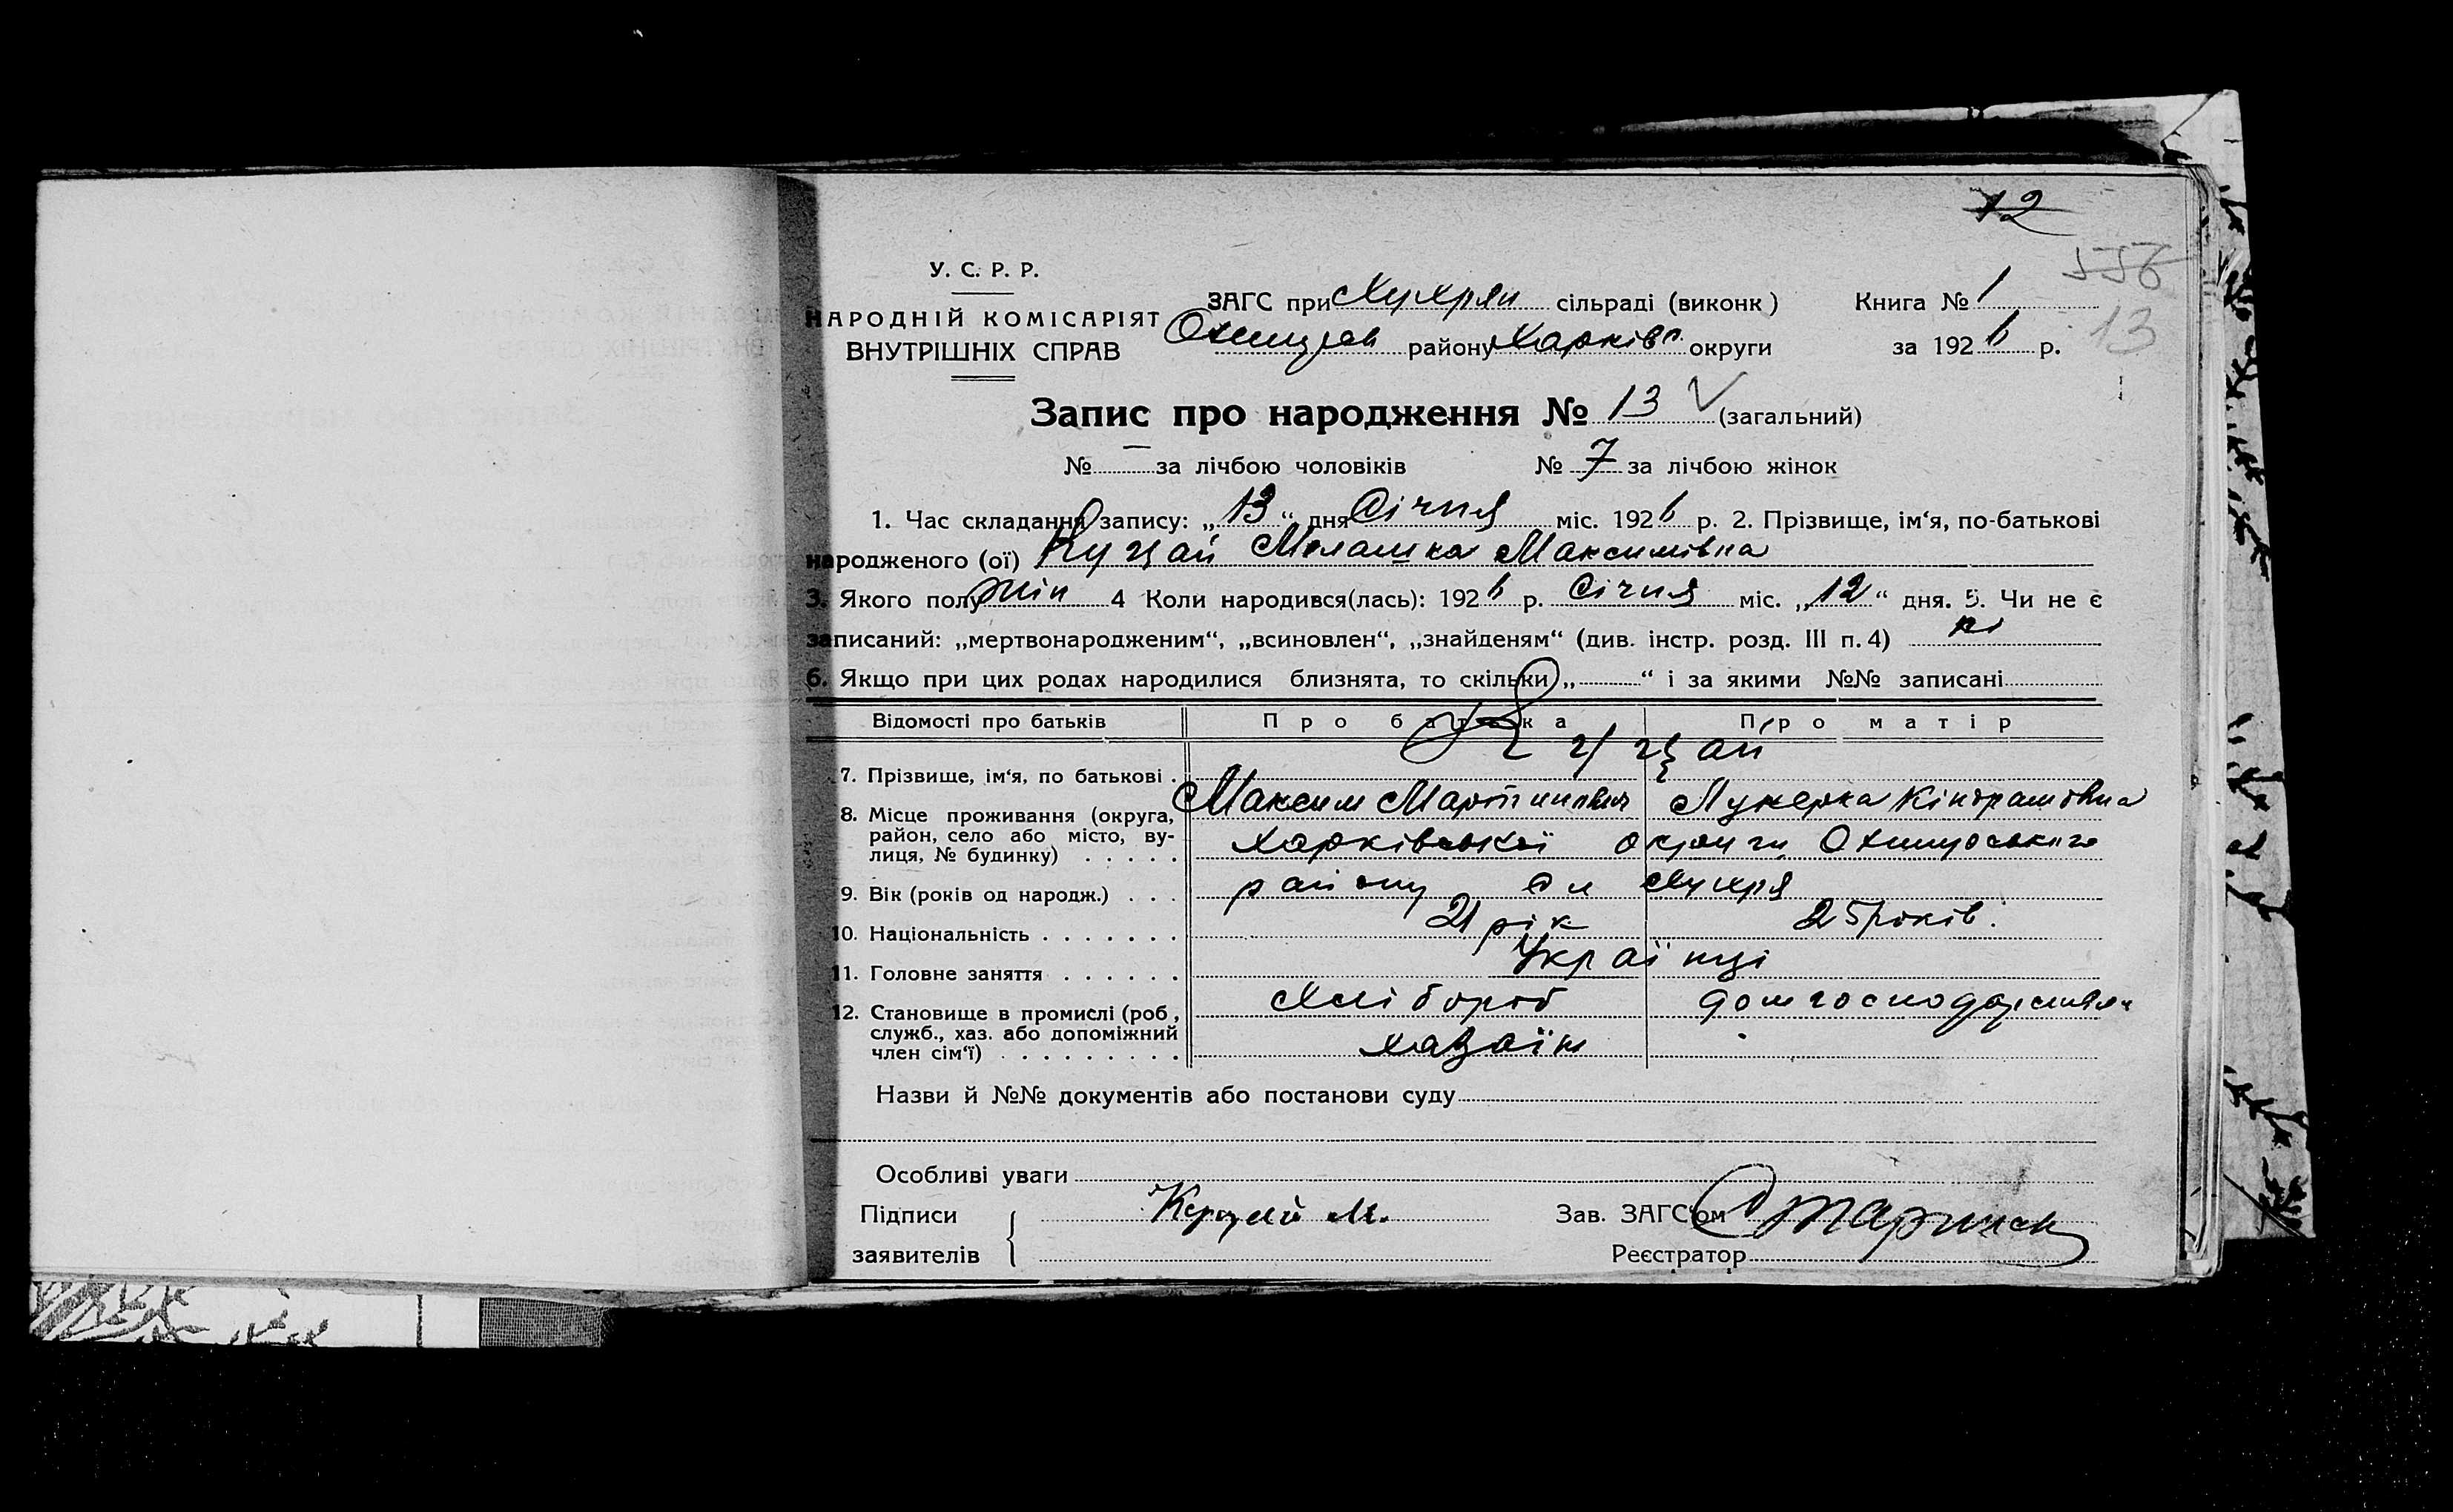 12
556
13
У. С. Р. Р.
НАРОДНІЙ КОМІСАРІЯТ
ВНУТРІШНІХ СПРАВ
ЗАГС при Хухрян сільраді (виконк)
Охтирськ району Харків округи
Книга № 1
за 1926 р.
Запис про народження № 13 (загальний)
№ — за лічбою чоловіків № 7 за лічбою жінок
1. Час складання запису: „13“ дня Січня міс. 1926 р. 2. Прізвище, ім‘я, по-батькові
народженого (ої) Куцай Мелашка Максимівна
3. Якого полу жін 4 Коли народився(лась): 1926 р. Січня міс. „12“ дня. 5. Чи не є
записаний: „мертвонародженим“, „всиновлен“, „знайденям“ (див. інстр. розд. III п. 4) ні
6. Якщо при цих родах народилися близнята, то скільки „ “ і за якими №№ записані
Відомості про батьків Про батька Про матір
7. Прізвище, ім‘я, по батькові . Куцай
Максим Мартинович Лукерка Кіндратовна
8. Місце проживання (округа, район, село або місто, вулиця, № будинку) . . . . .
Харківської округи Охтирського
району Хухря
9. Вік (років од народж.) . . . 21 рік 25 років.
10. Національність . . . . . . . Українці
11. Головне заняття . . . . . . Хлібороб домгосподарств
12. Становище в промислі (роб, служб., хаз. або допоміжний член сім‘ї) . . . . . . . . .
хазаїн
Назви й №№ документів або постанови суду
Особливі уваги
Підписи заявителів
Куцай М.
Зав. ЗАГС‘ом
Реєстратор